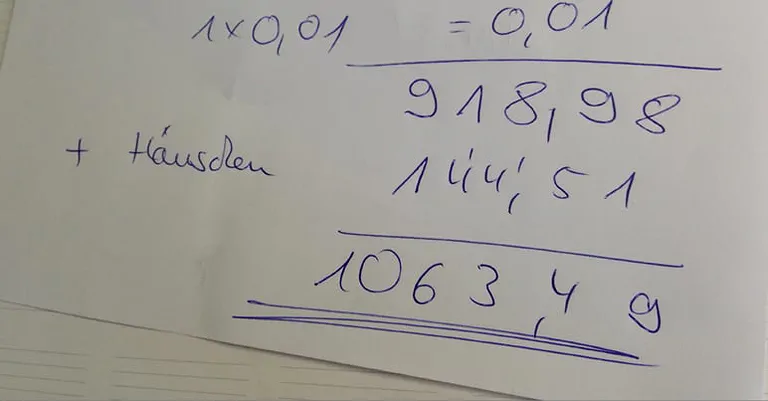 1x0,01 = 0,01
918,98
+ Häuschen 144,51
1063,49